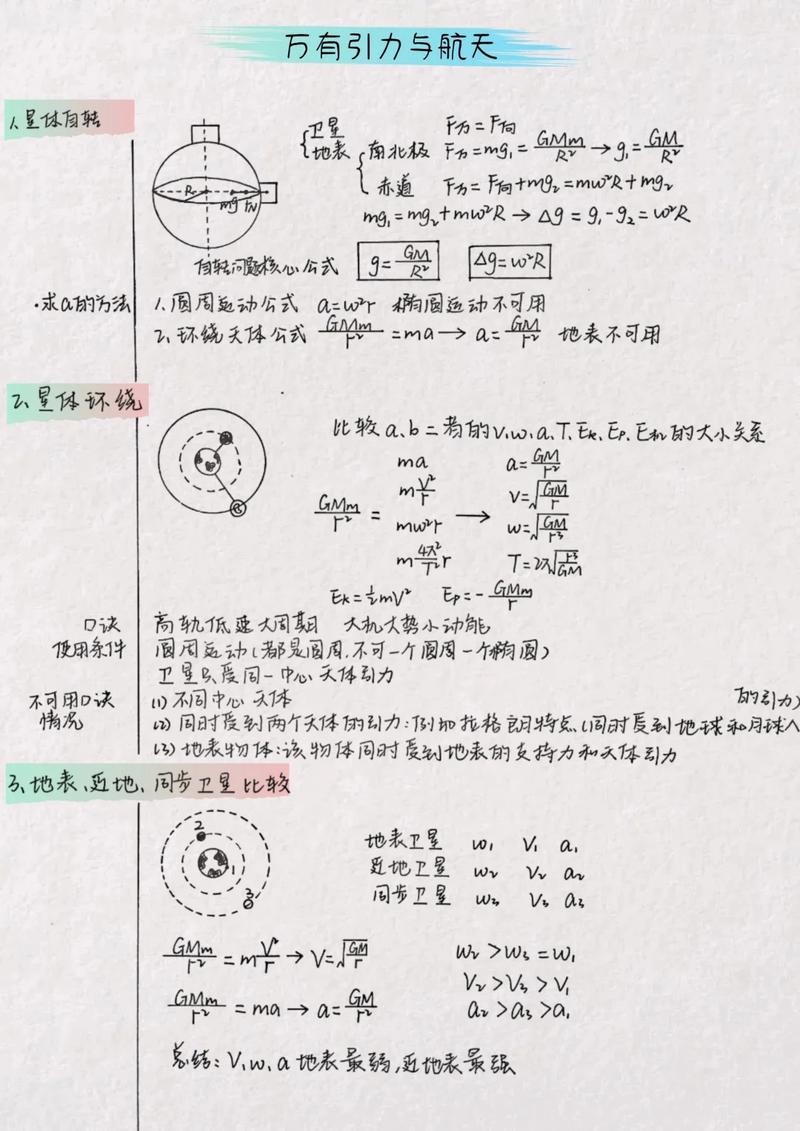 万有引力与航天
1、星体自转
卫星 F万=F向
地表 南北极 F万=mg₁=GMm/R²→g₁=GM/R²
赤道 F万=F向+mg₂=mω²R+mg₂
mg₁=mg₂+mω²R→Δg=g₁-g₂=ω²R
R mg FN
自转问题核心公式 g=GM/R² Δg=ω²R
·求a的方法 1、圆周运动公式 a=ω²r 椭圆运动不可用
2、环绕天体公式 GMm/r²=ma→a=GM/r² 地表不可用
2、星体环绕
比较a、b二者的v、ω、a、T、Ek、Ep、E机的大小关系
ma a=GM/r²
m v²/r v=√(GM/r)
GMm/r² = mω²r → ω=√(GM/r³)
m 4π²/T² r T=2π√(r³/GM)
Ek=½mv² Ep=-GMm/r
口诀 高轨低速大周期 大机大势小动能
使用条件 圆周运动(都是圆周,不可一个圆周一个椭圆)
卫星只受同一中心天体引力
不可用口诀情况 (1)不同中心天体
(2)同时受到两个天体的引力:例如拉格朗日特点(同时受到地球和月球的引力)
(3)地表物体:该物体同时受到地表的支持力和天体引力
3、地表、近地、同步卫星比较
2
1
3
地表卫星 ω₁ V₁ a₁
近地卫星 ω₂ V₂ a₂
同步卫星 ω₃ V₃ a₃
GMm/r²=m V²/r→V=√(GM/r) ω₂>ω₃=ω₁
V₂>V₃>V₁
GMm/r²=ma→a=GM/r² a₂>a₃>a₁
总结:V、ω、a地表最弱,近地表最强